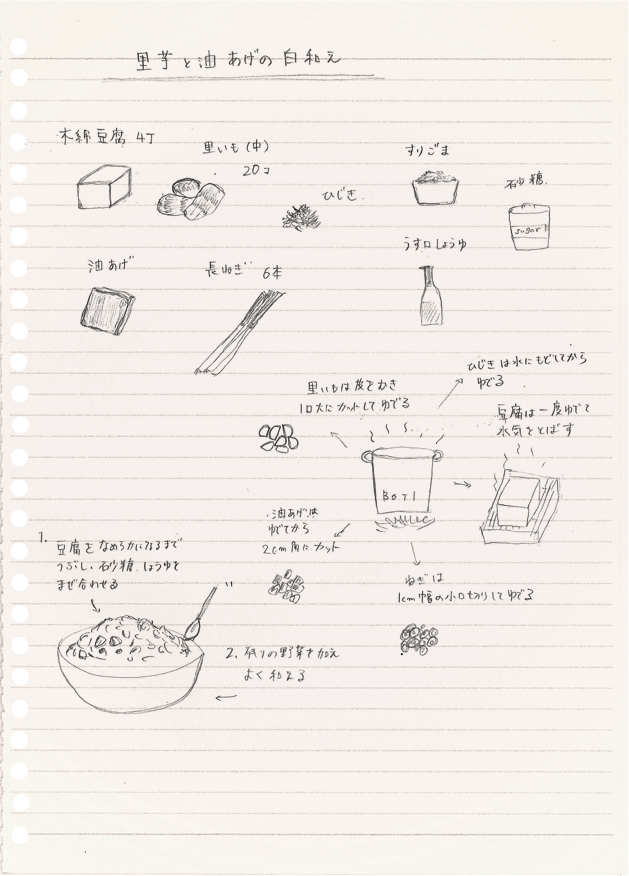 里芋と油あげの白和え
木綿豆腐 4丁
里いも(中)
20コ
ひじき
すりごま
砂糖
sugar
油あげ
長ねぎ 6本
うす口しょうゆ
里いもは皮をむき
1口大にカットしてゆでる
ひじきは水にもどしてから
ゆでる
豆腐は一度ゆでて
水気をとばす
BOIL
・油あげは
ゆでてから
2cm角にカット
ねぎは
1cm幅の小口切りしてゆでる
1. 豆腐をなめらかになるまで
つぶし、砂糖、しょうゆを
まぜ合わせる
2. 残りの野菜を加え
よく和える